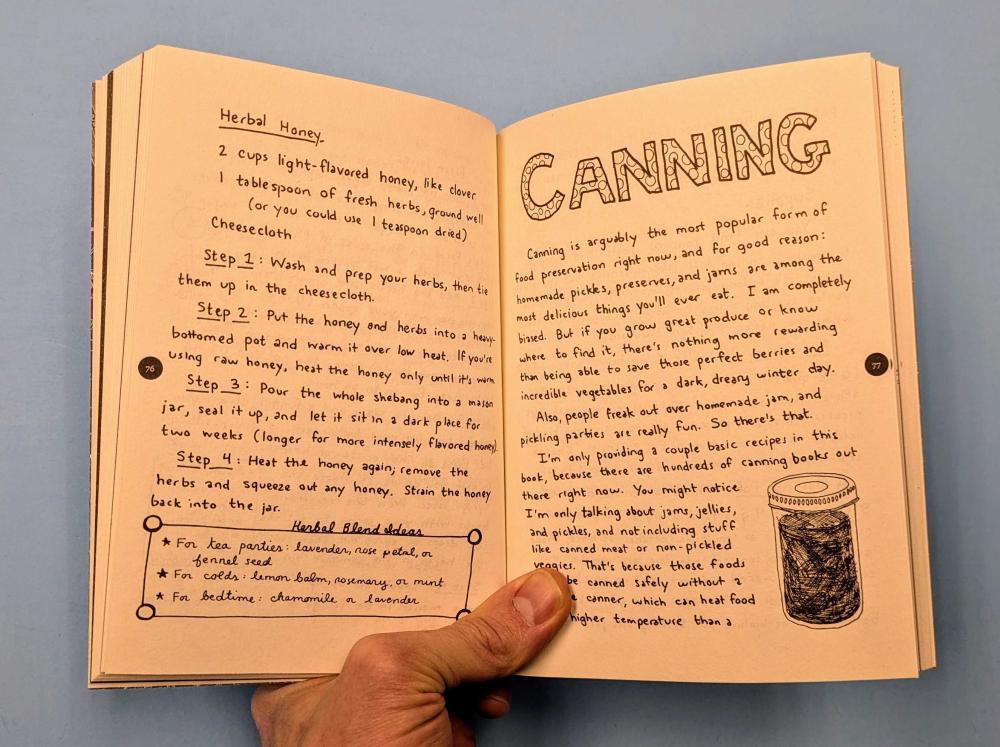 Herbal Honey
2 cups light-flavored honey, like clover
1 tablespoon of fresh herbs, ground well
(or you could use 1 teaspoon dried)
Cheesecloth
Step 1: Wash and prep your herbs, then tie
them up in the cheesecloth.
Step 2: Put the honey and herbs into a heavy-
bottomed pot and warm it over low heat. If you're
using raw honey, heat the honey only until it's warm
76
Step 3: Pour the whole shebang into a mason
jar, seal it up, and let it sit in a dark place for
two weeks (longer for more intensely flavored honey).
Step 4: Heat the honey again; remove the
herbs and squeeze out any honey. Strain the honey
back into the jar.
Herbal Blend Ideas
★ For tea parties: lavender, rose petal, or
fennel seed
★ For colds: lemon balm, rosemary, or mint
★ For bedtime: chamomile or lavender
CANNING
Canning is arguably the most popular form of
food preservation right now, and for good reason:
homemade pickles, preserves, and jams are among the
most delicious things you'll ever eat. I am completely
biased. But if you grow great produce or know
where to find it, there's nothing more rewarding
than being able to save those perfect berries and
incredible vegetables for a dark, dreary winter day.
77
Also, people freak out over homemade jam, and
pickling parties are really fun. So there's that.
I'm only providing a couple basic recipes in this
book, because there are hundreds of canning books out
there right now. You might notice
I'm only talking about jams, jellies,
and pickles, and not including stuff
like canned meat or non-pickled
veggies. That's because those foods
be canned safely without a
canner, which can heat food
higher temperature than a